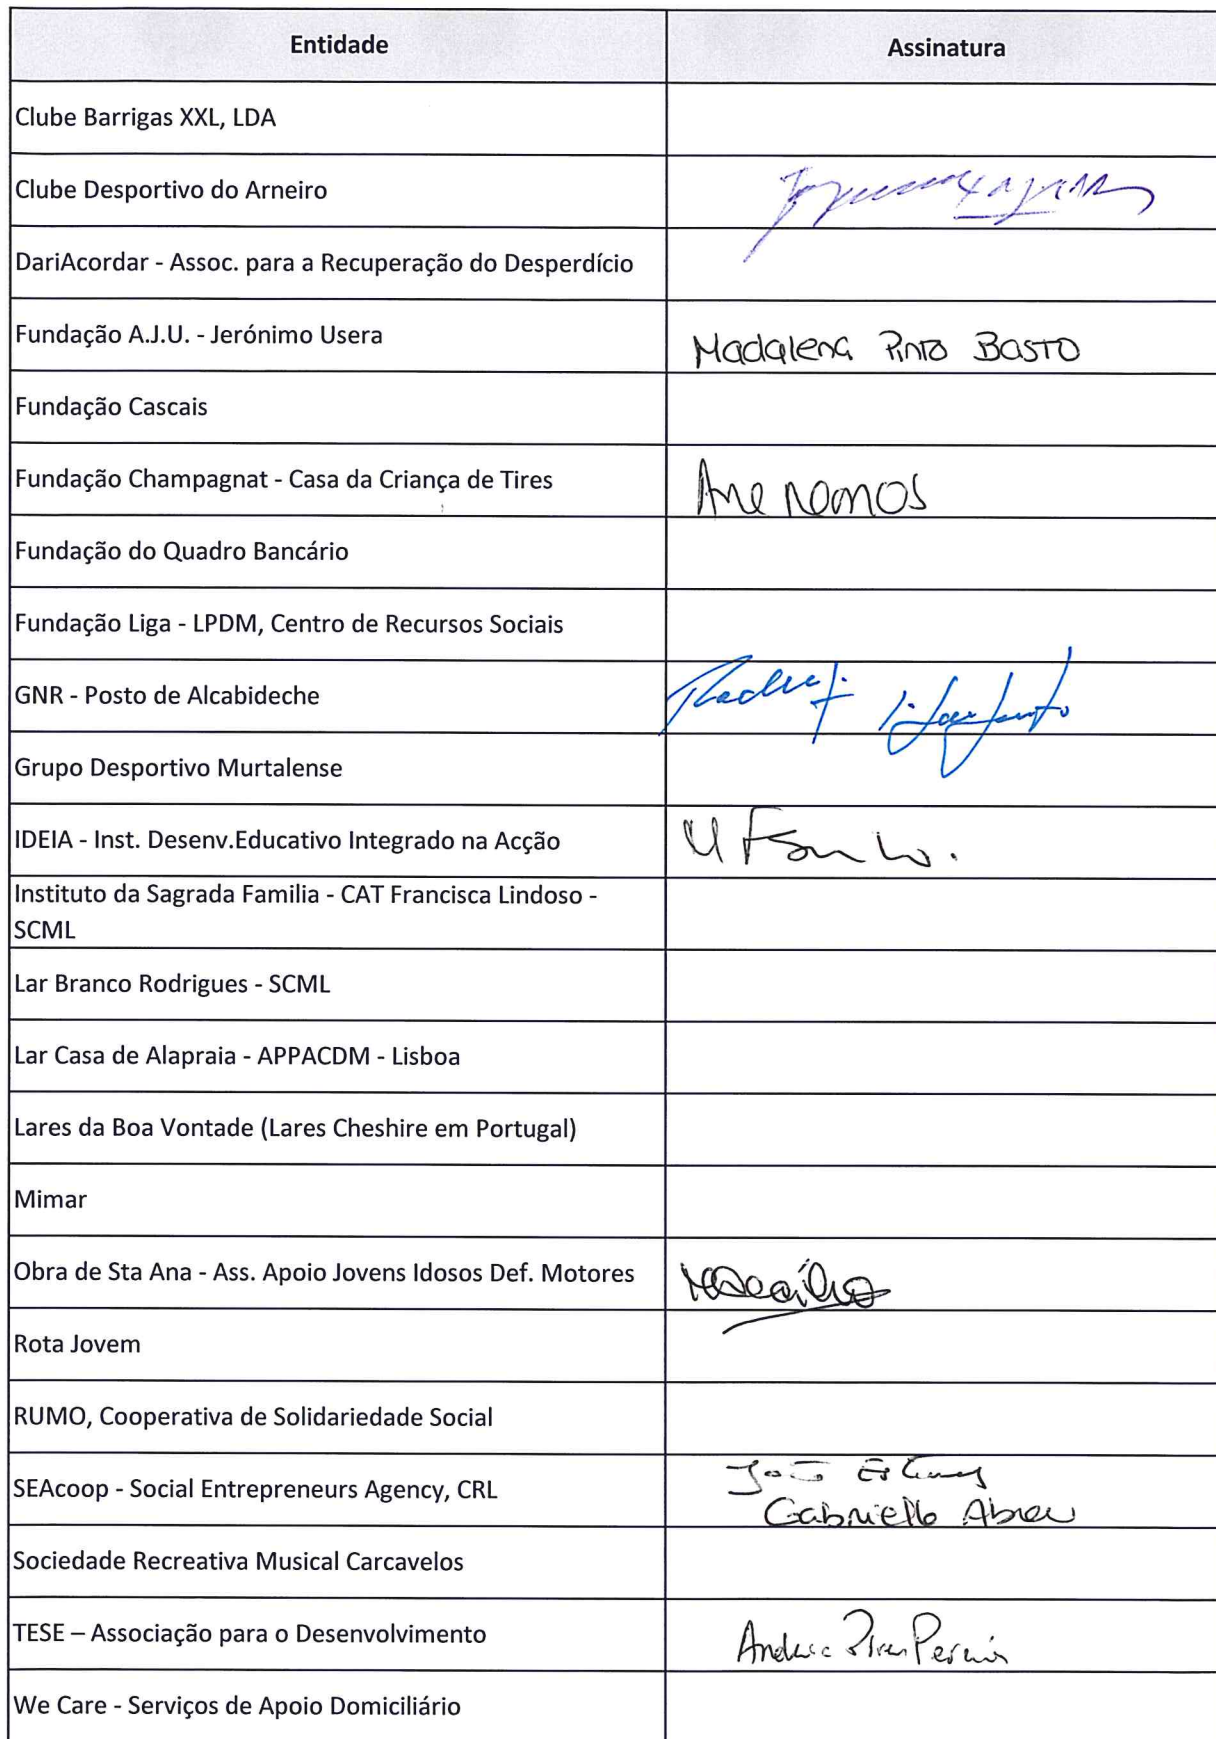 Entidade Assinatura
Clube Barrigas XXL, LDA
Clube Desportivo do Arneiro
DariAcordar - Assoc. para a Recuperação do Desperdício
Fundação A.J.U. - Jerónimo Usera Madalena Pinto Basto
Fundação Cascais
Fundação Champagnat - Casa da Criança de Tires Ana Ramos
Fundação do Quadro Bancário
Fundação Liga - LPDM, Centro de Recursos Sociais
GNR - Posto de Alcabideche
Grupo Desportivo Murtalense
IDEIA - Inst. Desenv.Educativo Integrado na Acção
Instituto da Sagrada Familia - CAT Francisca Lindoso -
SCML
Lar Branco Rodrigues - SCML
Lar Casa de Alapraia - APPACDM - Lisboa
Lares da Boa Vontade (Lares Cheshire em Portugal)
Mimar
Obra de Sta Ana - Ass. Apoio Jovens Idosos Def. Motores
Rota Jovem
RUMO, Cooperativa de Solidariedade Social
SEAcoop - Social Entrepreneurs Agency, CRL João
Gabriella Abreu
Sociedade Recreativa Musical Carcavelos
TESE – Associação para o Desenvolvimento
We Care - Serviços de Apoio Domiciliário